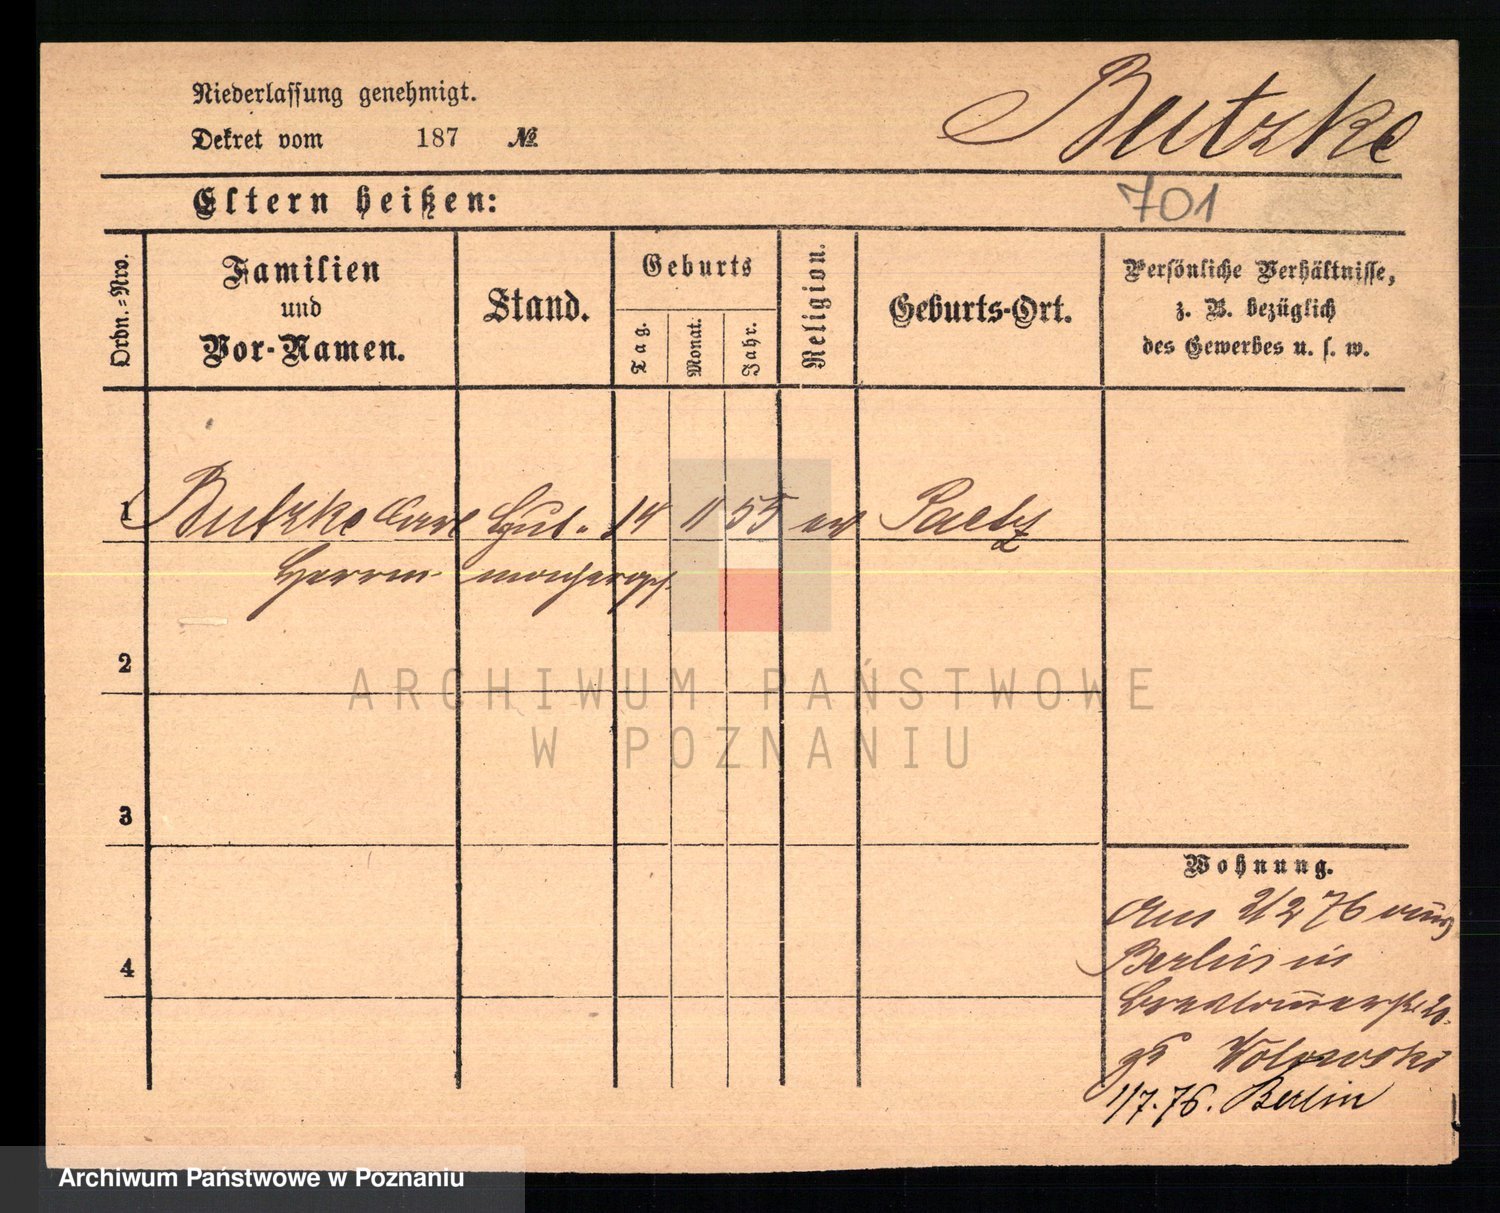 Niederlassung genehmigt.
Butzke
Dekret vom 187 №
Eltern heißen:
701
Ordn.-Nro.
Familien
und
Vor-Namen.
Stand.
Geburts
Tag.
Monat.
Jahr.
Religion.
Geburts-Ort.
Persönliche Verhältnisse,
z. B. bezüglich
des Gewerbes u. s. w.
1 Butzke Carl Hut- 14 11 55 ev Paetz
Herrm. machergs.
2
ARCHIWUM PAŃSTWOWE
W POZNANIU
3
Wohnung.
Am 2/2 76 aus
Berlin in
4
20.
Wolowski
1/7.76. Berlin
Archiwum Państwowe w Poznaniu